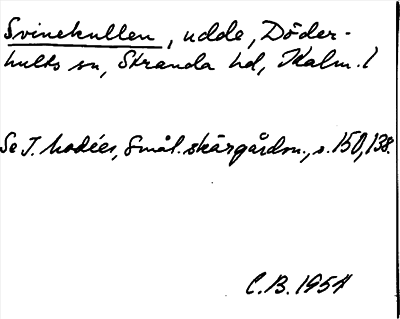 Svinekullen, udde, Döder-
hults sn, Stranda hd, Kalm. l
Se J. Modéer, Smål. skärgårdsn., s. 150, 138.
C.B. 1954